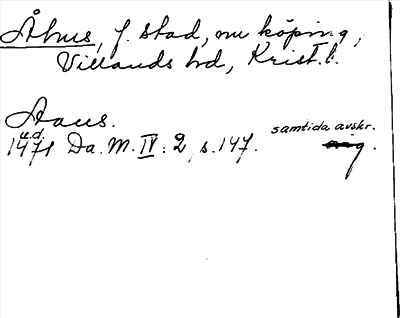 Åhus, f. stad, nu köping,
Villands hd, Krist. l.
Aaus.
u.d. samtida avskr.
1471 Da. M. IV: 2, s. 147. orig.